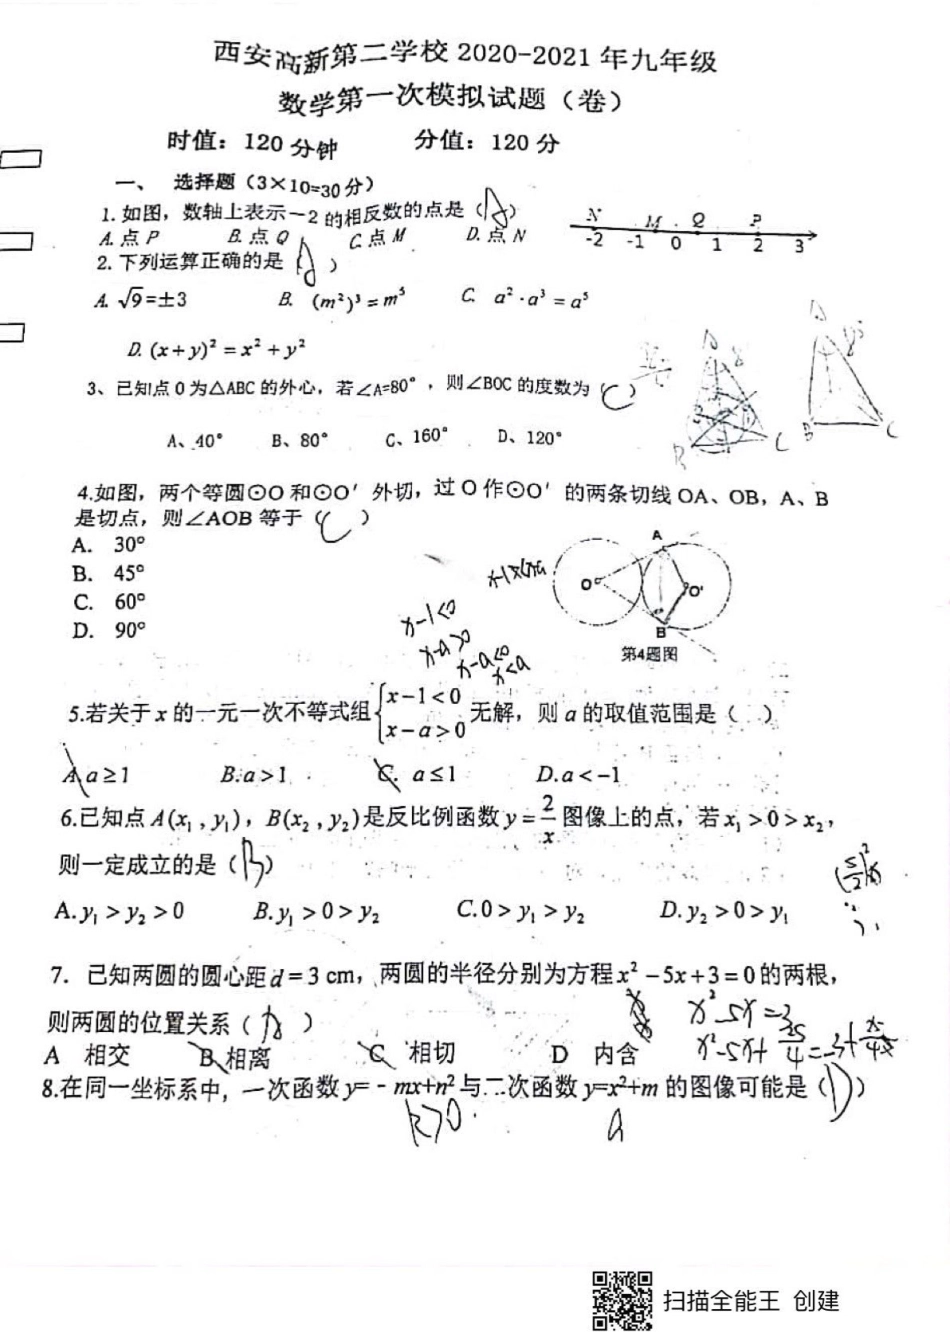 西安高新第二学校 2020-2021 年九年级
数学第一次模拟试题（卷）
时值：120 分钟 分值：120 分
一、 选择题（3×10=30分）
1. 如图，数轴上表示－2 的相反数的点是（A）
A. 点 P B. 点 Q C. 点 M D. 点 N
N M Q P
-2 -1 0 1 2 3
2. 下列运算正确的是（ ）
A. √9=±3 B. (m²)³=m⁵ C. a²·a³=a⁵
D. (x+y)²=x²+y²
3、已知点 O 为△ABC 的外心，若∠A=80°，则∠BOC 的度数为（C）
A、40° B、80° C、160° D、120°
A B C
A B C
4.如图，两个等圆⊙O 和⊙O′ 外切，过 O 作⊙O′ 的两条切线 OA、OB，A、B
是切点，则∠AOB 等于（C）
A. 30°
B. 45°
C. 60°
D. 90°
A O O' B
第4题图
x-1<0
x-a>0
x-a<0
x<a
5.若关于 x 的一元一次不等式组{x-1<0 x-a>0 无解，则 a 的取值范围是（ ）
A.a≥1 B.a>1 C. a≤1 D.a<-1
6.已知点 A(x₁,y₁)，B(x₂,y₂)是反比例函数 y=2/x 图像上的点，若 x₁>0>x₂，
则一定成立的是（B）
A.y₁>y₂>0 B.y₁>0>y₂ C.0>y₁>y₂ D.y₂>0>y₁
7. 已知两圆的圆心距 d=3 cm，两圆的半径分别为方程 x²-5x+3=0 的两根，
则两圆的位置关系（A）
A 相交 B 相离 C 相切 D 内含
8.在同一坐标系中，一次函数 y=-mx+n²与二次函数 y=x²+m 的图像可能是（D）
k>0
a
扫描全能王 创建